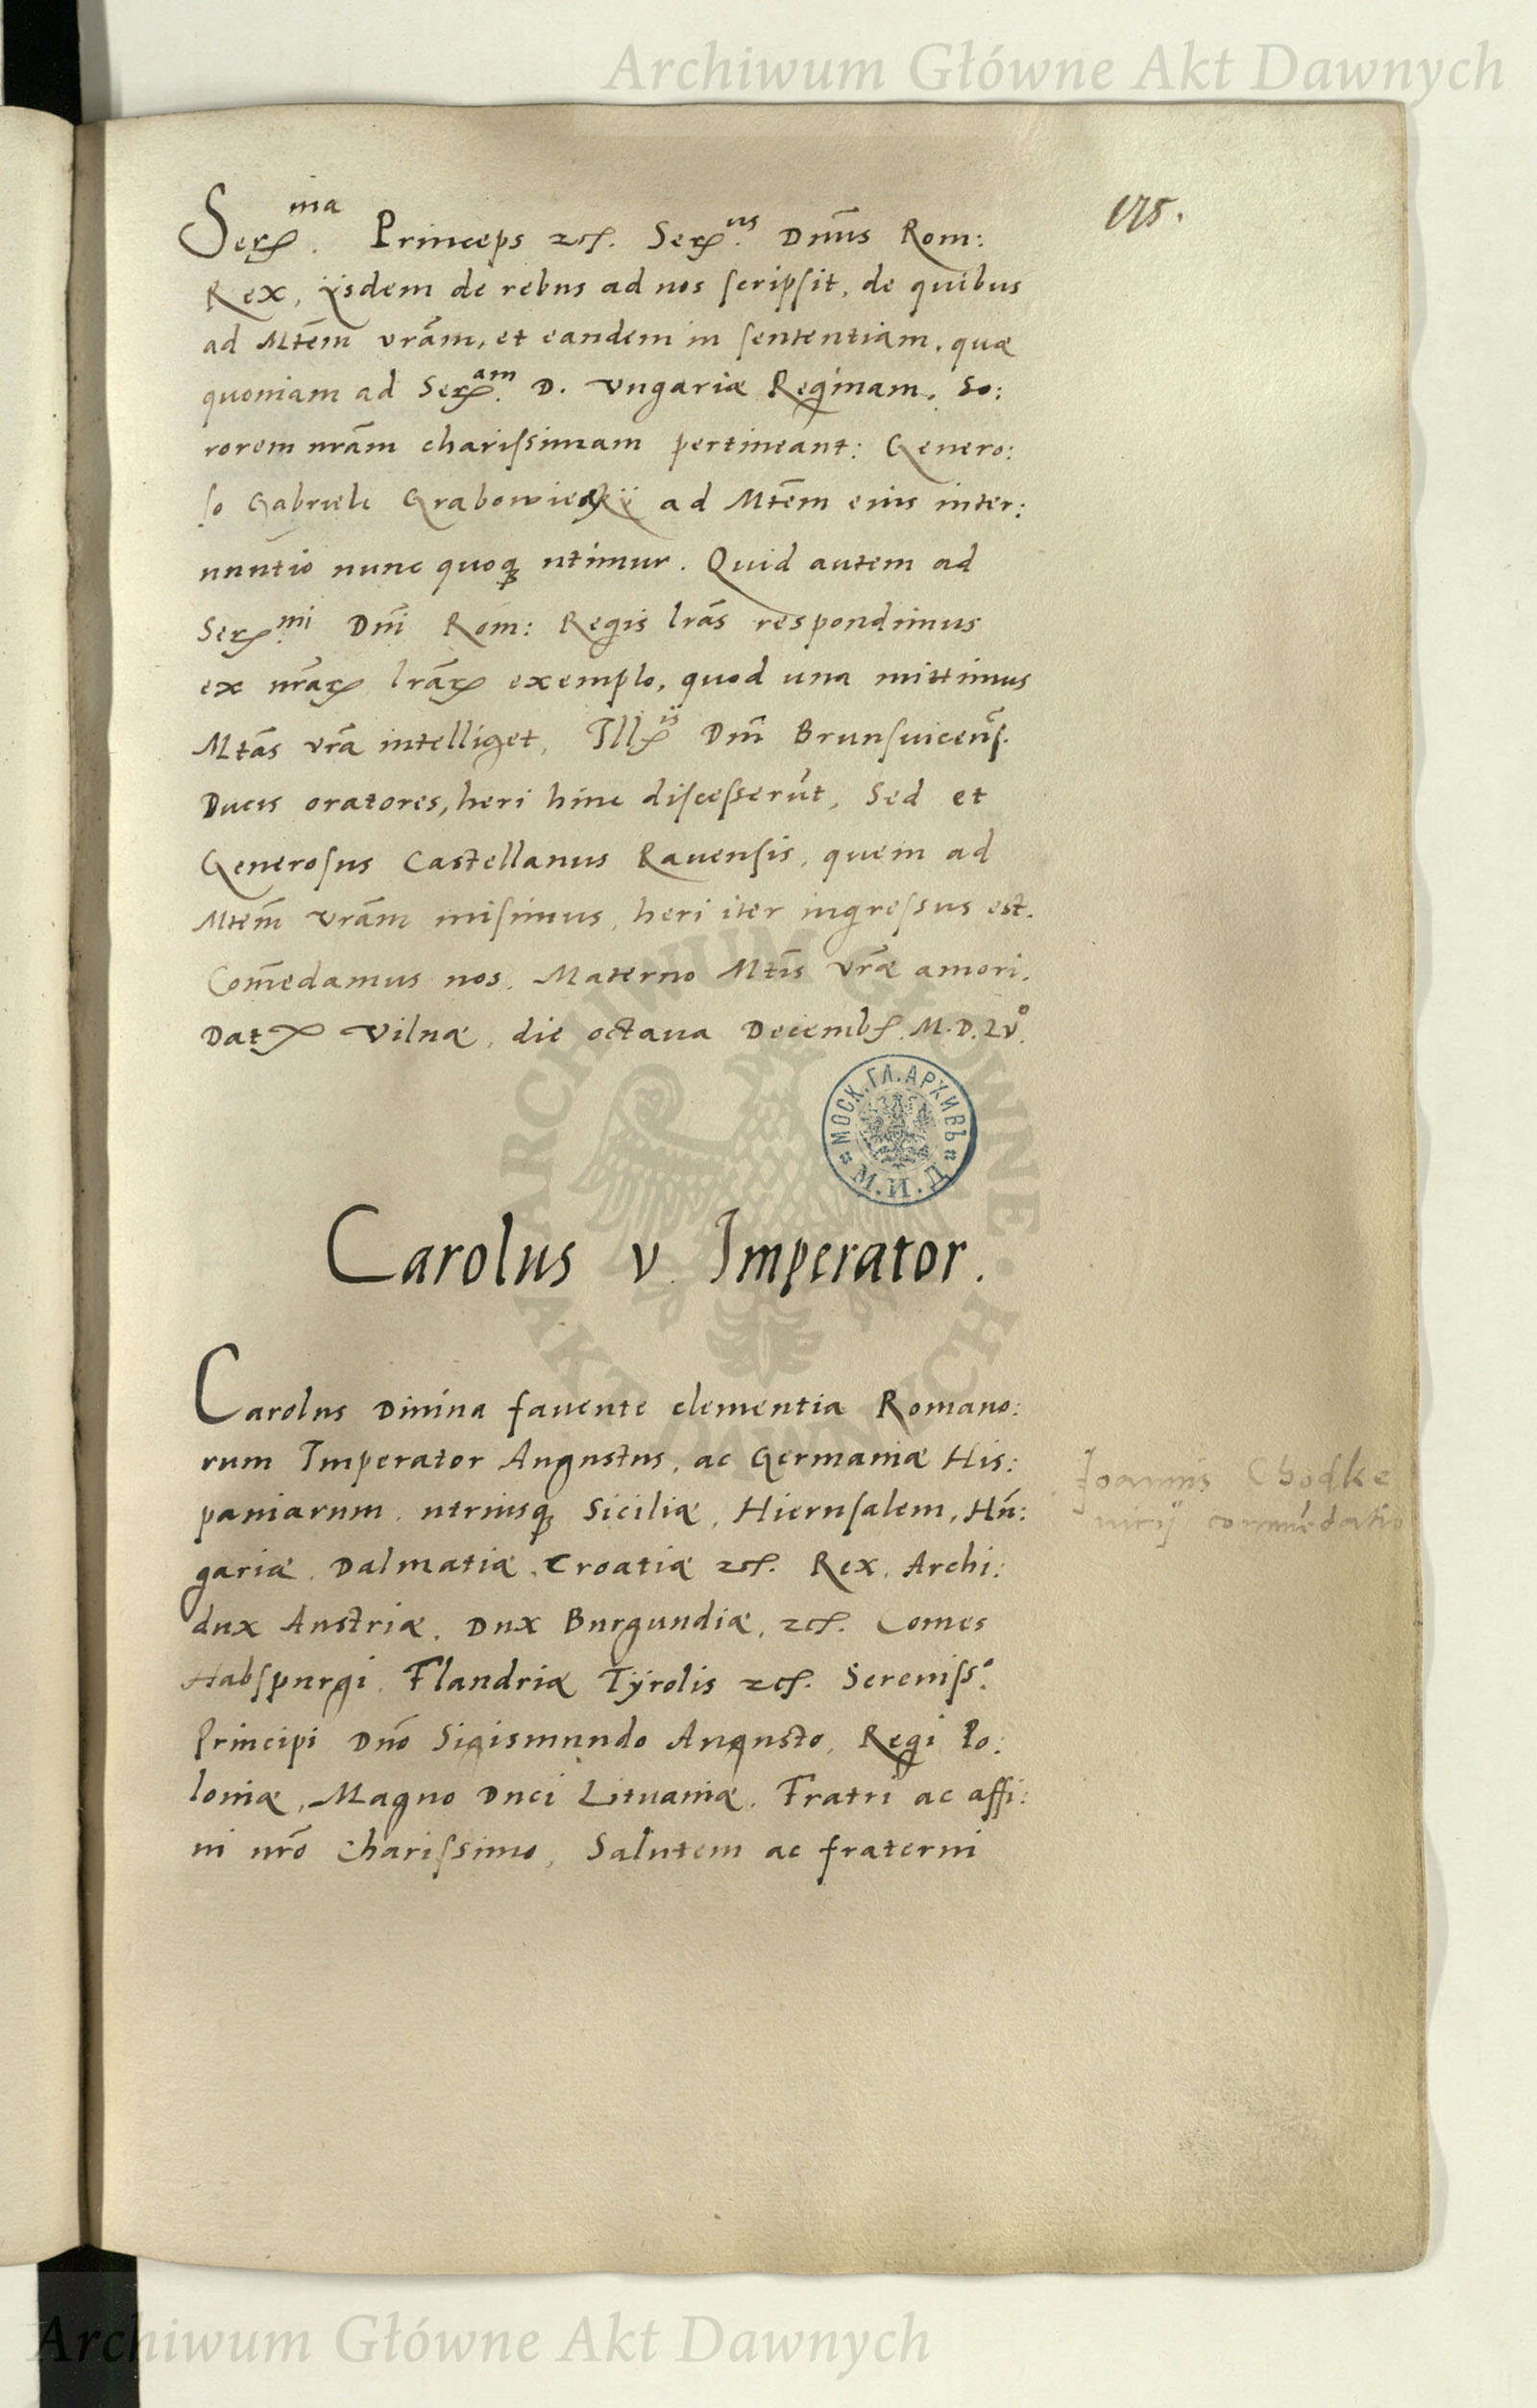 Archiwum Główne Akt Dawnych
175.
Ser.ma Princeps etc. Ser.us Dn̄us Rom:
Rex, ijsdem de rebus ad nos scripsit, de quibus
ad Mtēm vrām, et eandem in sententiam, quæ
quoniam ad Ser.am D. Vngariæ Reginam, So:
rorem nrām charissimam pertineant: Genero:
so Gabrieli Grabowieckij ad Mtēm eius inter:
nuntio nunc quoq; utimur. Quid autem ad
Ser.mi Dn̄i Rom: Regis lrās respondimus
ex nrāꝝ lrāꝝ exemplo, quod una mittimus
Mtās vrā intelliget, Ill.is Dn̄i Brunsuiceñs.
Ducis oratores, heri hinc discesserūt, Sed et
Generosus Castellanus Rauensis, quem ad
Mtēm vrām misimus, heri iter ingressus est.
Com̄edamus nos, Materno Mtīs vrǣ amori.
Datꝝ Vilnæ, die octaua Decemb. M.D.Lvº.
МОСК. ГЛ. АРХИВЪ
М.И.Д.
ARCHIWUM GŁÓWNE AKT DAWNYCH
Carolus v. Imperator.
Carolus Diuina fauente clementia Romano:
rum Imperator Augustus, ac Germaniæ His:
paniarum, utriusq; Siciliæ, Hierusalem, Hūn:
gariæ, Dalmatiæ, Croatiæ etc. Rex, Archi:
dux Austriæ, Dux Burgundiæ, etc. Comes
Habspurgi, Flandriæ Tÿrolis etc. Sereniss.º
Principi Dn̄o Sigismundo Augusto, Regi Po:
loniæ, Magno Duci Lituaniæ, Fratri ac affi:
ni nrō charissimo, Salutem ac fraterni
Joannis Chodke
uicij commēdatio
Archiwum Główne Akt Dawnych